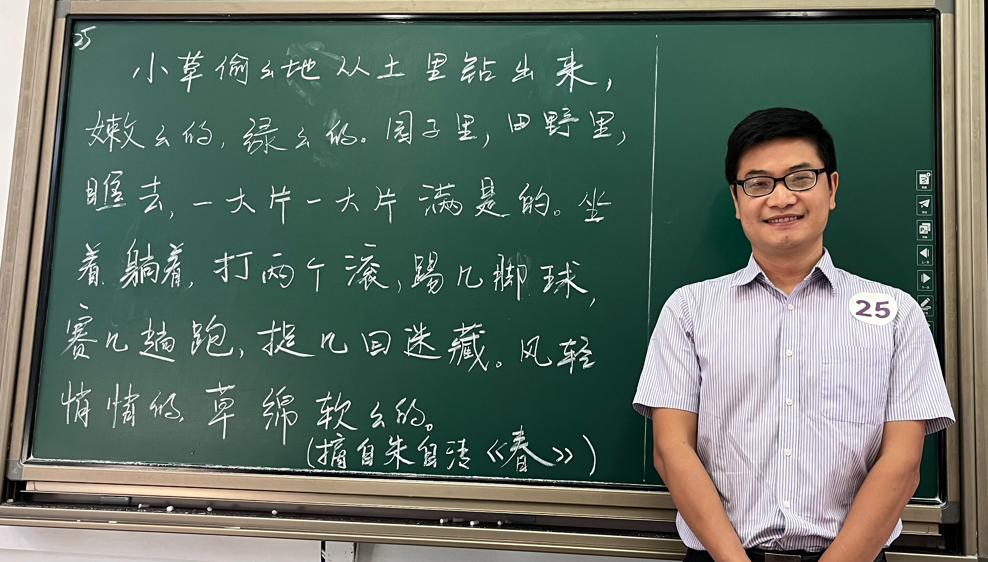 25
小草偷么地从土里钻出来，
嫩么的，绿么的。园子里，田野里，
瞧去，一大片一大片满是的。坐
着，躺着，打两个滚，踢几脚球，
赛几趟跑，捉几回迷藏。风轻
悄悄的，草绵软么的。
（摘自朱自清《春》）
25